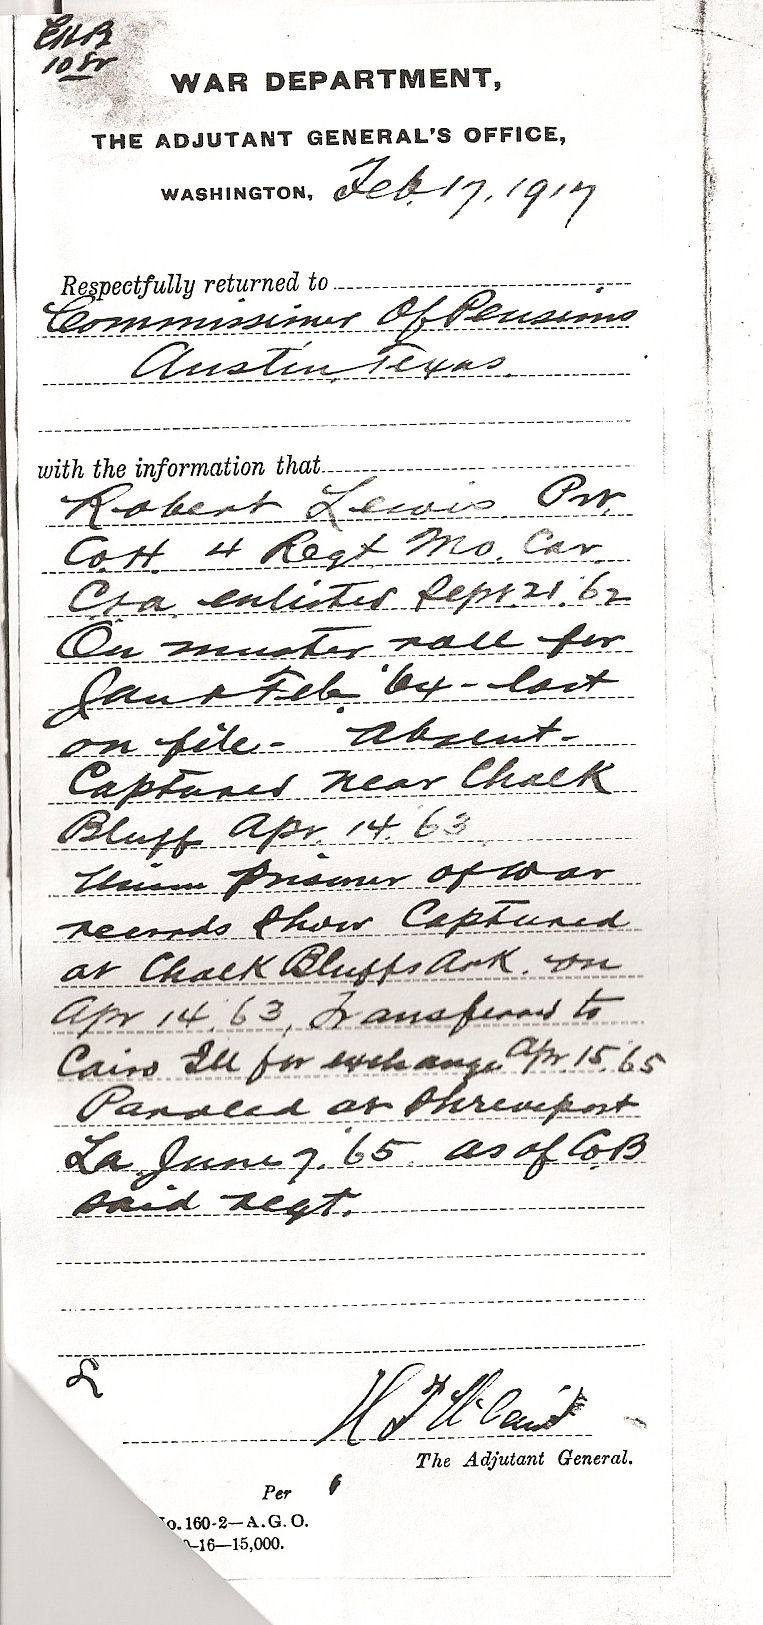 WAR DEPARTMENT,
THE ADJUTANT GENERAL'S OFFICE,
WASHINGTON, Feb. 17, 1917
Respectfully returned to
Commissioner Of Pensions
Austin, Texas.
with the information that
Robert Lewis Pvt.
Co. H. 4 Regt Mo. Cav.
C.S.A. enlisted Sept. 21. '62
On muster roll for
Jan & Feb. '64 - last
on file - Absent -
Captured near Chalk
Bluff Apr. 14. '63
Union prisoner of war
records show Captured
at Chalk Bluffs Ark. on
Apr 14. '63, transferred to
Cairo Ill for exchange Apr. 15. '65
Paroled at Shreveport
La. June 7. '65 as of Co. B
said regt.
The Adjutant General.
Per
No. 160-2—A. G. O.
-16—15,000.